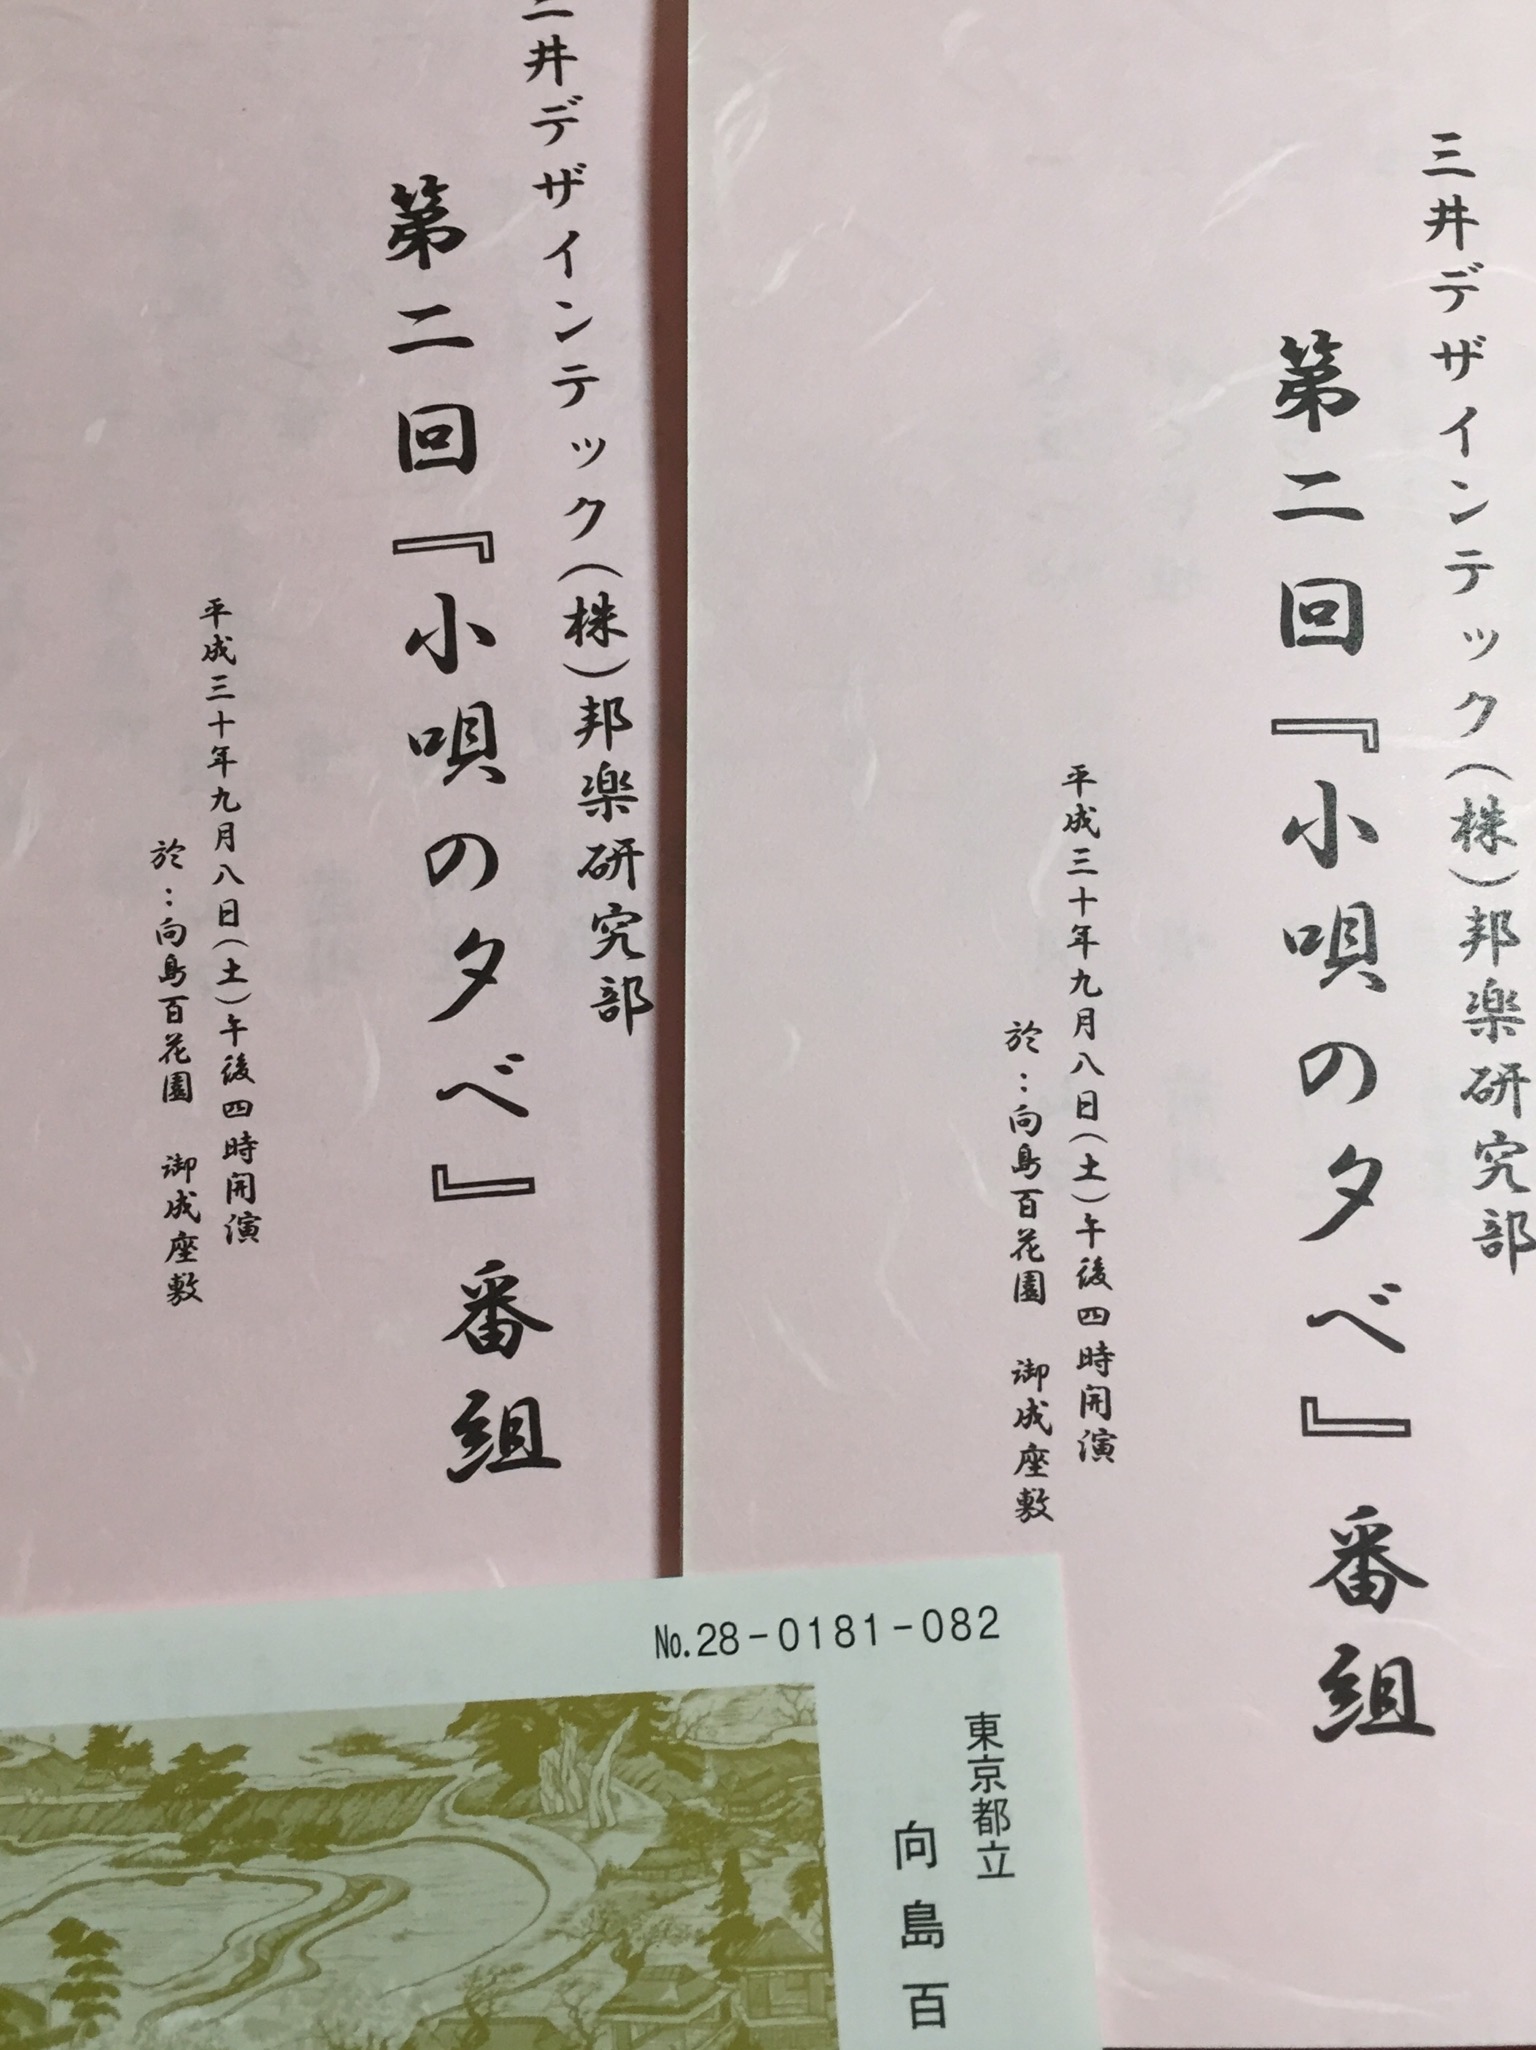 三井デザインテック(株)邦楽研究部
第二回『小唄の夕べ』番組
平成三十年九月八日(土)午後四時開演
於：向島百花園　御成座敷
三井デザインテック(株)邦楽研究部
第二回『小唄の夕べ』番組
平成三十年九月八日(土)午後四時開演
於：向島百花園　御成座敷
№.28-0181-082
東京都立
向島百